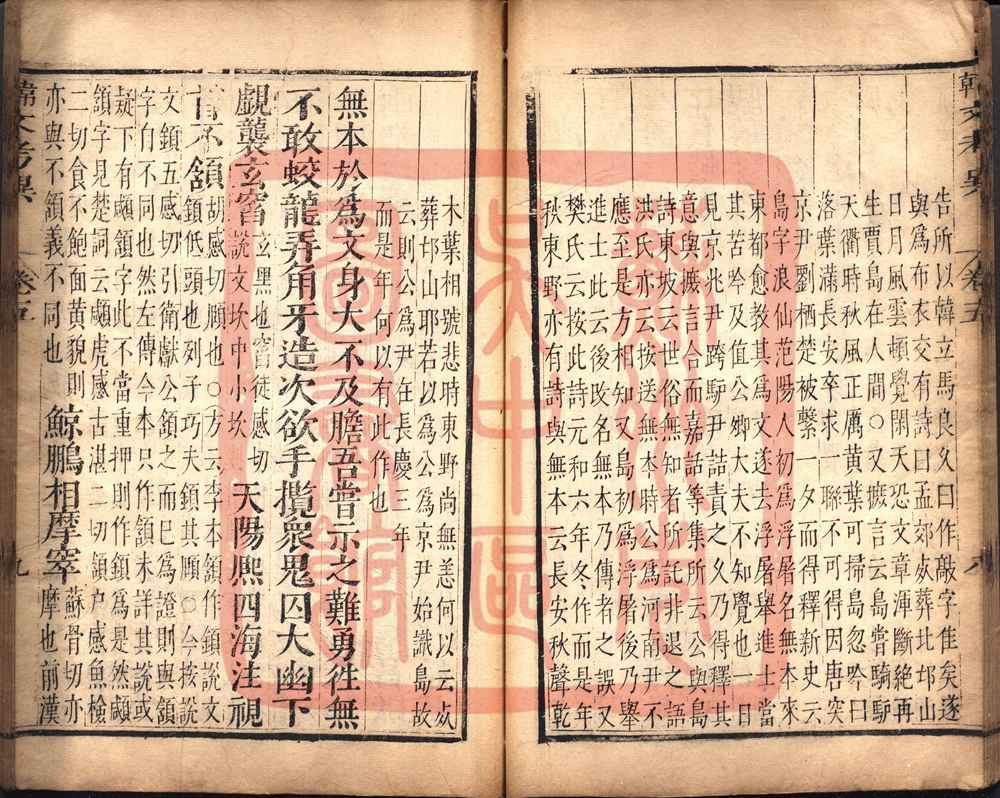 韓文考異 卷五 八
告所以韓立馬良久曰作敲字佳矣遂
與爲布衣交有詩曰孟郊㱙葬北邙山
日月風雲頓覺閑天恐文章渾斷絶再
生賈島在人間○又摭言云島嘗騎馿
天衢時秋風正厲黄葉可掃島忽吟曰
落葉滿長安卒求一聯不可得因唐突
京尹劉栖楚被繫一夕而得釋新史云
島字浪仙范陽人初爲浮屠名無本來
東都愈教其爲文遂去浮屠舉進士當
其苦吟及值公卿大夫不知覺也一日
見京兆尹跨馿尹詰責之久乃得釋其
意與摭言合而嘉話等集所云公與島
詩東坡云世俗無知者所託非退之語
洪氏亦云按送無本時公爲河南尹不
應至是方相知又島初爲浮屠後乃舉
進士此云後改名無本乃傳者之誤又
樊氏云按此詩元和六年冬作而是年
秋東野亦有詩與無本云長安秋聲乾
木葉相號悲時東野尚無恙何以云㱙
葬邙山耶若以爲公爲京尹始識島故
云則公爲尹在長慶三年
而是年何以有此作也
無本於爲文身大不及膽吾嘗示之難勇徃無
不敢蛟龍弄角牙造次欲手攬衆鬼囚大幽下
覷襲玄窞玄黑也窞徒感切說文坎中小坎天陽熈四海注視
首不頷胡感切頤也○方云李本頷作顉說文顉低頭也列子巧夫顉其頤○今按說
文顉五感切引衛獻公頷之而已爲證則與頷字自不同也然左傳今本只作頷未詳其說或
疑下有顑頷字此不當重押則作顉爲是然顑頷字見楚詞云顑虎感古湛二切頷户感魚檢
二切食不飽面黄貌則亦與不頷義不同也鯨鵬相摩窣蘇骨切亦摩也前漢
韓文考異 卷五 九